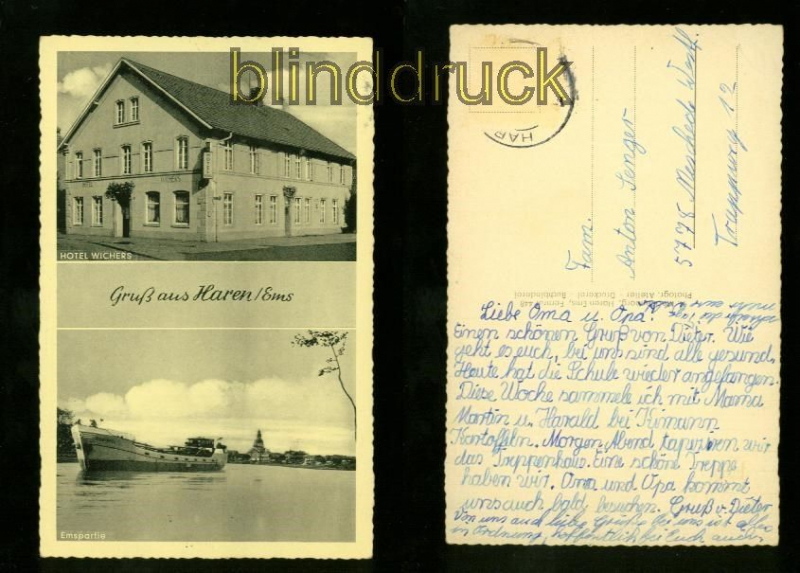 blinddruck
HOTEL WICHERS
Gruß aus Haren/Ems
Emspartie
HAR
Fam.
Anton Senger
5778 Meschede Westf.
Trappweg 12
Haren Ems, Fernruf 448
Photogr. Atelier - Druckerei Buchbinderei
Liebe Oma u. Opa!
Einen schönen Gruß von Dieter. Wie
geht es euch, bei uns sind alle gesund.
Heute hat die Schule wieder angefangen.
Diese Woche sammele ich mit Mama
Martin u. Harald bei
Kartoffeln. Morgen Abend tapezieren wir
das Treppenhaus. Eine schöne Treppe
haben wir. Oma und Opa kommt
uns auch bald besuchen. Gruß v. Dieter
Von uns auch liebe Grüße bei uns ist alles
in Ordnung, hoffentlich bei Euch auch.